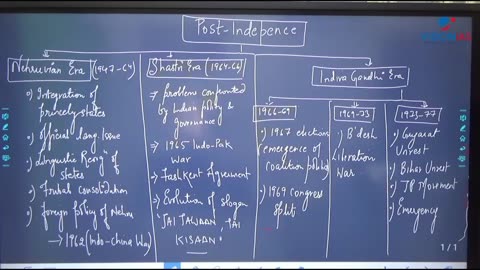 Post-Indepence
Nehruvian Era (1947-64)
o) Integration of
princely states
o) official lang. Issue
o) Linguistic Reorgⁿ of
states
o) Tribal consolidation
o) foreign policy of Nehru
→ 1962 (Indo-China War)
Shastri Era (1964-66)
→ problems confronted
by Indian polity &
governance
→ 1965 Indo-Pak
War
→ Tashkent Agreement
→ Evolution of slogan
'JAI JAWAAN, JAI
KISAAN'.
Indira Gandhi Era
1966-69
o) 1967 elections
emergence of
coalition politics
o) 1969 congress
split
1969-73
o) B'desh
Liberation
War
1973-77
o) Gujarat
Unrest
o) Bihar Unrest
o) JP Movement
o) Emergency
1/1